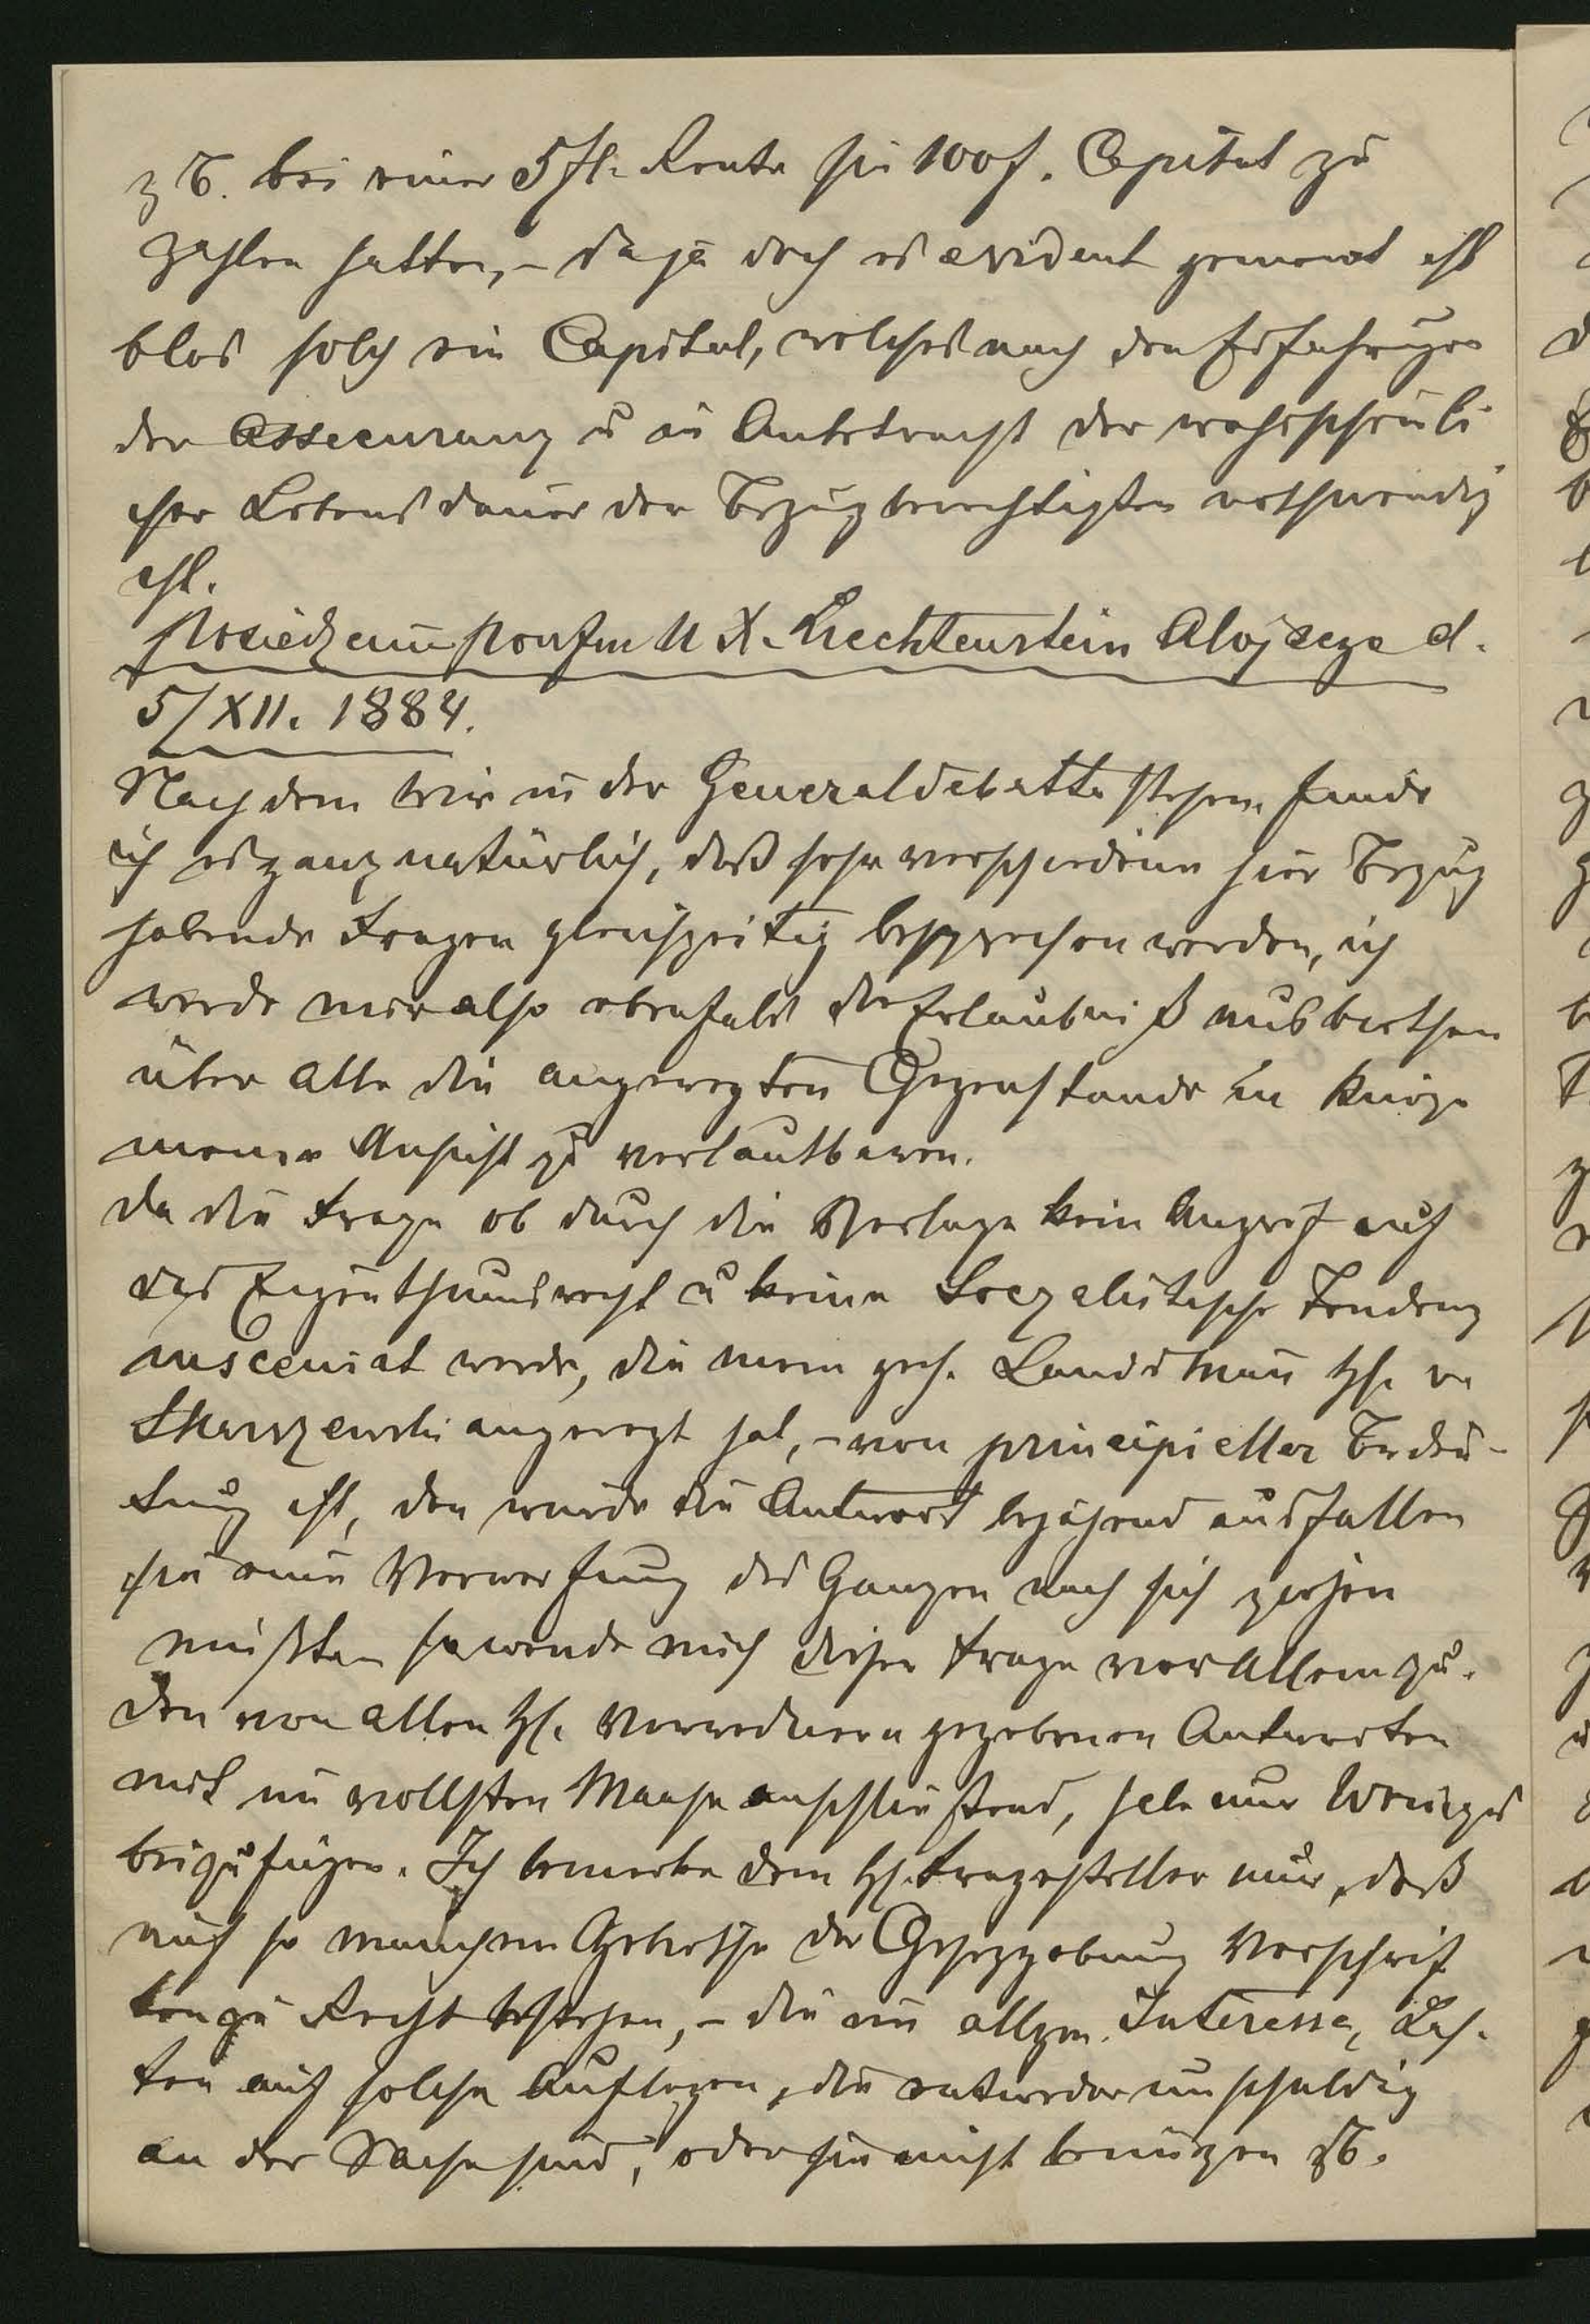 z B. bei einer 5 fl. Rente sie 100 f. Capital zu
zahlen hatten, – da ja doch es evident gemeint ist
blos solch ein Capital, welches nach den Erfahrungen
der Assecuranz u in Anbetracht der wahrscheinli
cher Lebensdauer der Bezugberechtigten nothwendig
ist.
Posiedzenie poufne U X. Liechtenstein Alojzego d.
5/XII. 1884.
Nachdem wir in der Generaldebatte stehen, finde
ich es ganz natürlich, daß sehr verschiedene hier Bezug
habende Fragen gleichzeitig besprochen werden, ich
werde mir also ebenfals die Erlaubniß ausbiethen
über alle die angeregten Gegenstande in Kürze
meine Ansicht zu verlautbaren.
Da die Frage ob durch die Vorlage kein Angrif auf
das Eigenthumsrecht u keine Soczalistische Tendenz
insceniert werde, die mein geh. Landsman H. v
Skarszewski angeregt hat, – von principieller Bedeu-
tung ist, den würde die Antwort bejahend ausfallen
sie eine Verwerfung des Ganzen nach sich ziehen
müßte so wende mich dieser Frage vor Allem zu.
Den von allen H. Vorrednern gegebenen Antworten
mich im vollsten Maase anschließend, habe nur Weniges
beizufügen. Ich bemerke dem H. Fragesteller nur, daß
auf so manchem Gebiethe der Gesezgebung Vorschrif
ten zu Recht bestehen, – die im allgm. Interesse, Las-
ten auf solche Auflegen, die entweder unschuldig
an der Sache sind, oder sie nicht benützen zB.